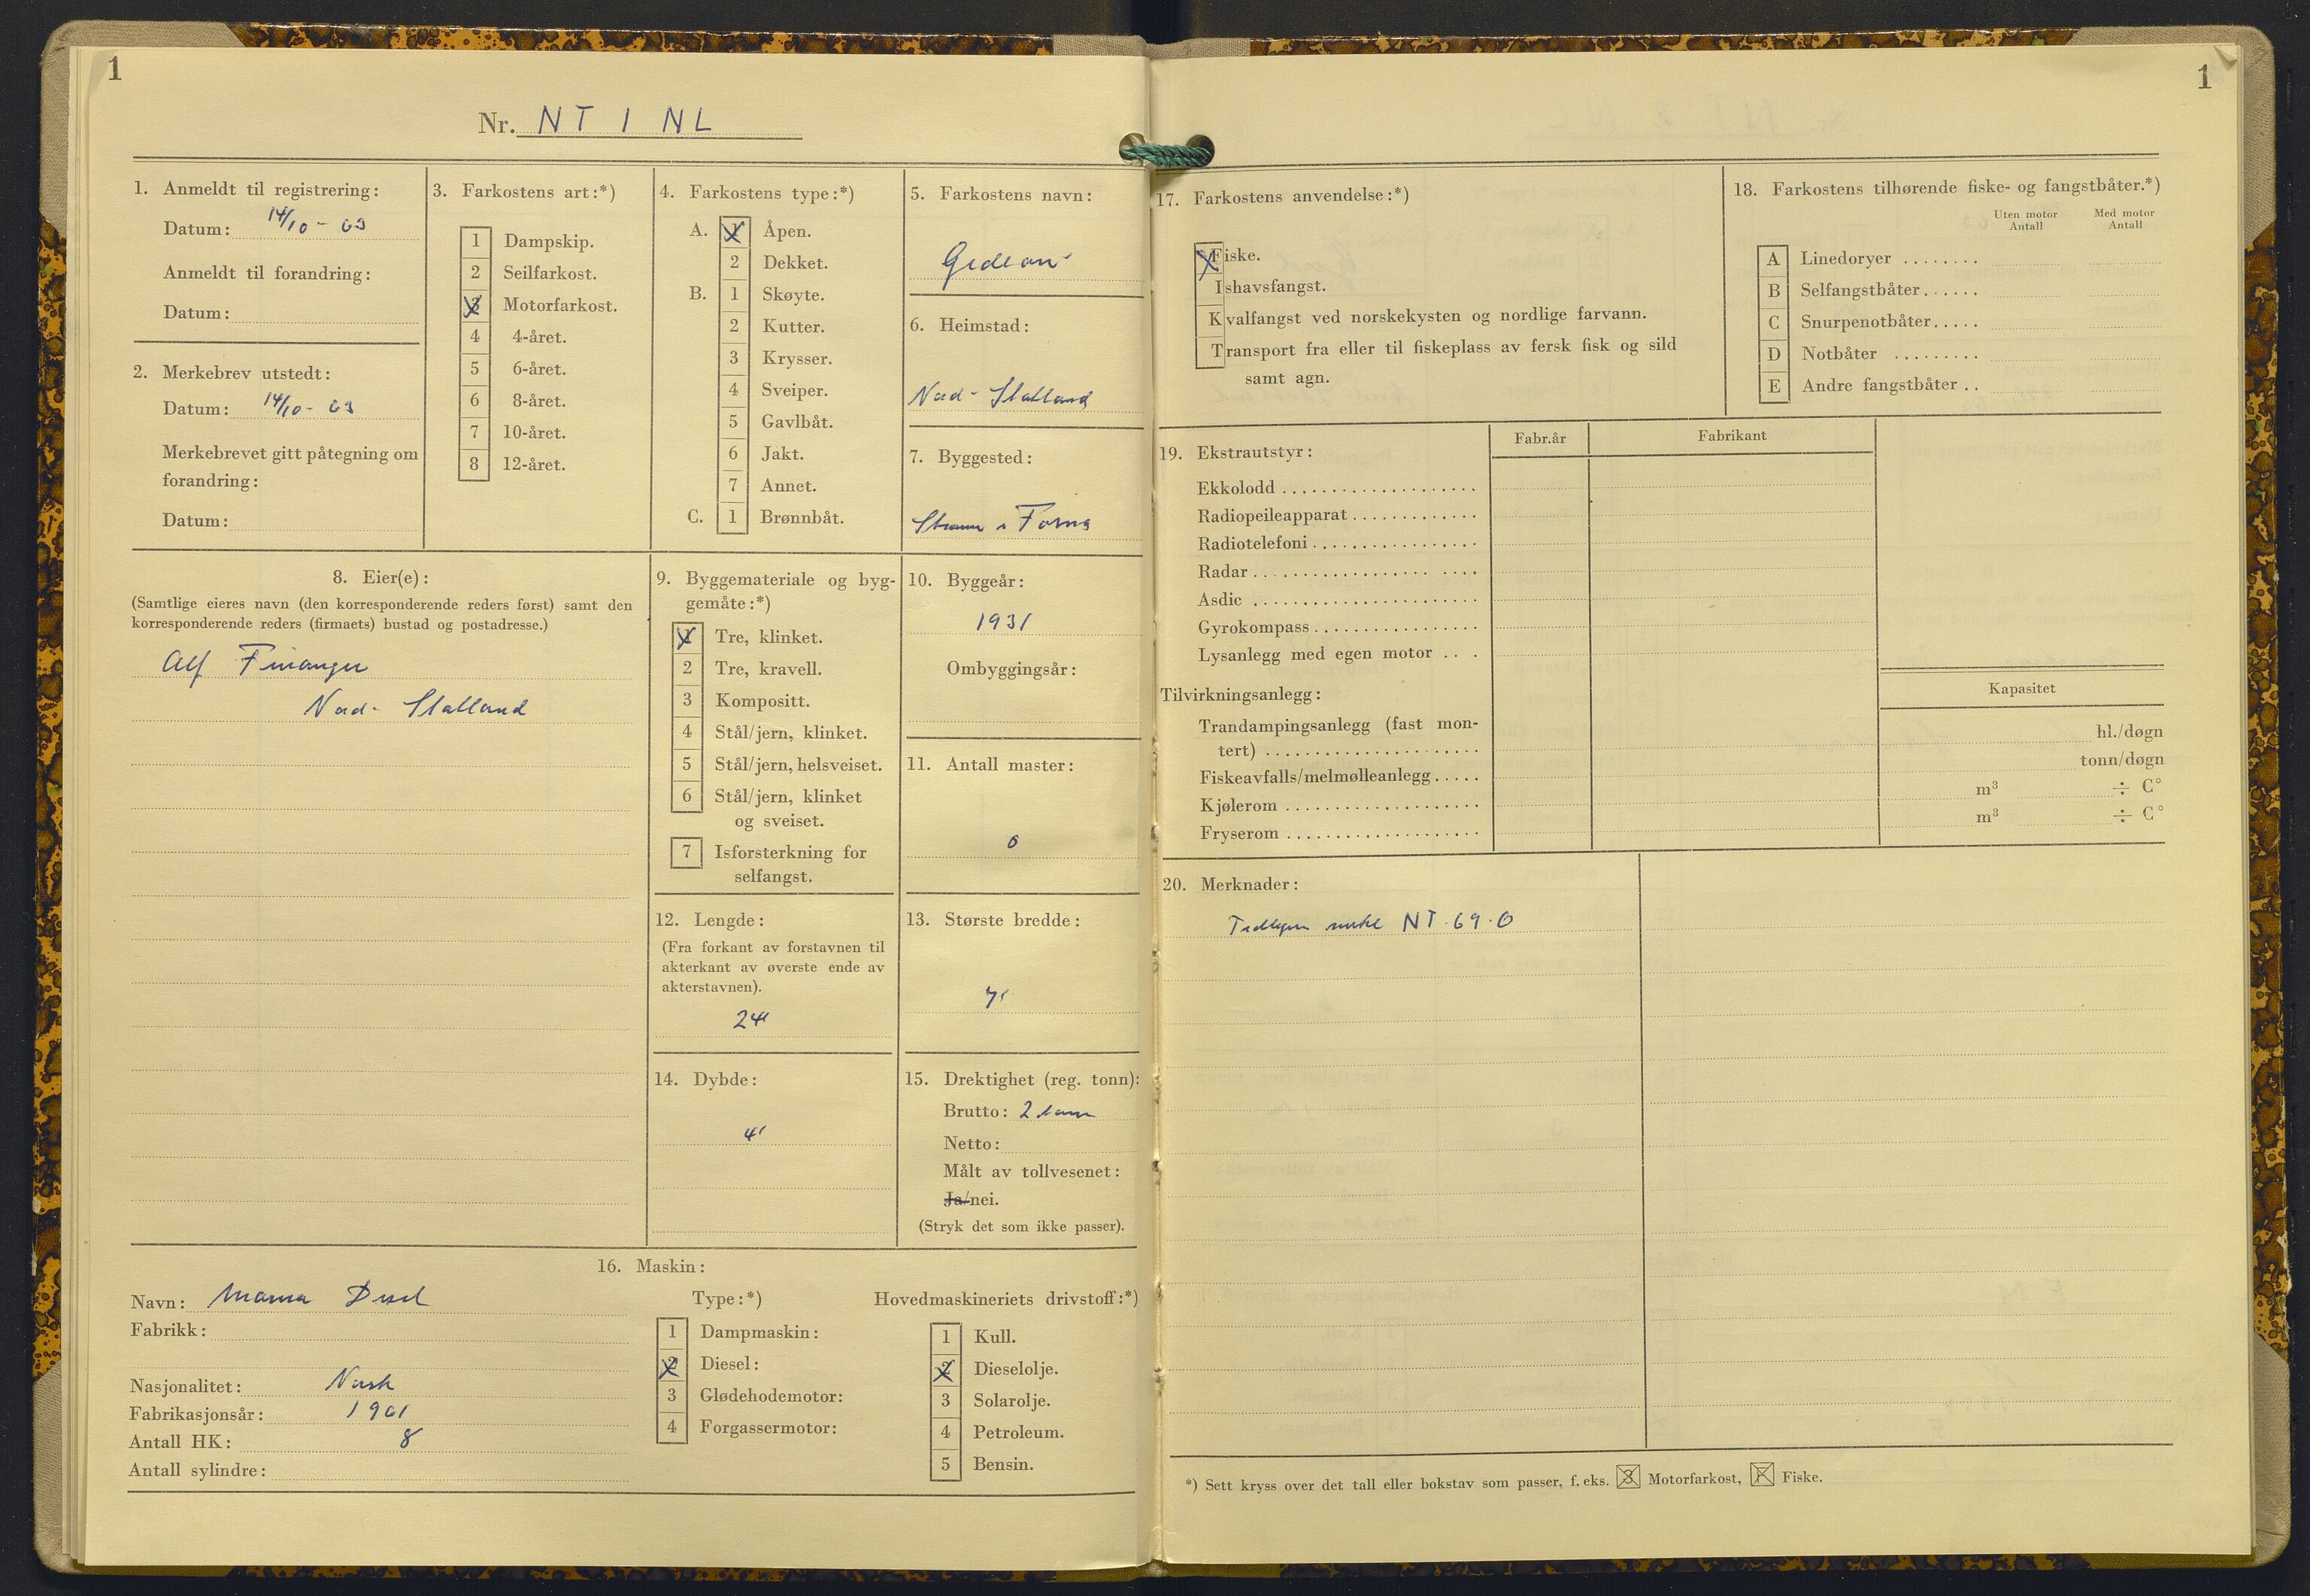 1
Nr. NT 1 NL
1. Anmeldt til registrering:
Datum: 14/10 - 63
Anmeldt til forandring:
Datum:
2. Merkebrev utstedt:
Datum: 14/10 - 63
Merkebrevet gitt påtegning om
forandring:
Datum:
3. Farkostens art:*)
1 Dampskip.
2 Seilfarkost.
3 Motorfarkost.
4 4-året.
5 6-året.
6 8-året.
7 10-året.
8 12-året.
4. Farkostens type:*)
A. 1 Åpen.
2 Dekket.
B. 1 Skøyte.
2 Kutter.
3 Krysser.
4 Sveiper.
5 Gavlbåt.
6 Jakt.
7 Annet.
C. 1 Brønnbåt.
5. Farkostens navn:
Gedeon
6. Heimstad:
Nord-Statland
7. Byggested:
i Fosna
8. Eier(e):
(Samtlige eieres navn (den korresponderende reders først) samt den
korresponderende reders (firmaets) bustad og postadresse.)
Alf Finanger
Nord-Statland
9. Byggemateriale og byg-
gemåte:*)
1 Tre, klinket.
2 Tre, kravell.
3 Kompositt.
4 Stål/jern, klinket.
5 Stål/jern, helsveiset.
6 Stål/jern, klinket
og sveiset.
7 Isforsterkning for
selfangst.
10. Byggeår:
1931
Ombyggingsår:
11. Antall master:
0
12. Lengde:
(Fra forkant av forstavnen til
akterkant av øverste ende av
akterstavnen).
24'
13. Største bredde:
7'
14. Dybde:
4'
15. Drektighet (reg. tonn):
Brutto: 2 tonn
Netto:
Målt av tollvesenet:
Ja/nei.
(Stryk det som ikke passer).
16. Maskin:
Navn: Marna Disel
Fabrikk:
Nasjonalitet: Norsk
Fabrikasjonsår: 1961
Antall HK: 8
Antall sylindre:
Type:*)
1 Dampmaskin:
2 Diesel:
3 Glødehodemotor:
4 Forgassermotor:
Hovedmaskineriets drivstoff:*)
1 Kull.
2 Dieselolje.
3 Solarolje.
4 Petroleum.
5 Bensin.
1
17. Farkostens anvendelse:*)
Fiske.
Ishavsfangst.
Kvalfangst ved norskekysten og nordlige farvann.
Transport fra eller til fiskeplass av fersk fisk og sild
samt agn.
18. Farkostens tilhørende fiske- og fangstbåter.*)
Uten motor Antall
Med motor Antall
A Linedoryer ........
B Selfangstbåter......
C Snurpenotbåter.....
D Notbåter .........
E Andre fangstbåter ..
Fabr.år
Fabrikant
19. Ekstrautstyr:
Ekkolodd ....................
Radiopeileapparat .............
Radiotelefoni .................
Radar ..................
Asdic .......................
Gyrokompass .................
Lysanlegg med egen motor ...
Tilvirkningsanlegg:
Kapasitet
Trandampingsanlegg (fast mon-
tert) ...................... hl./døgn
Fiskeavfalls/melmølleanlegg ..... tonn/døgn
Kjølerom .................... m³ ÷ C°
Fryserom .................... m³ ÷ C°
20. Merknader:
Tidligere merke NT-69-O
*) Sett kryss over det tall eller bokstav som passer, f. eks. 3 Motorfarkost, F Fiske.